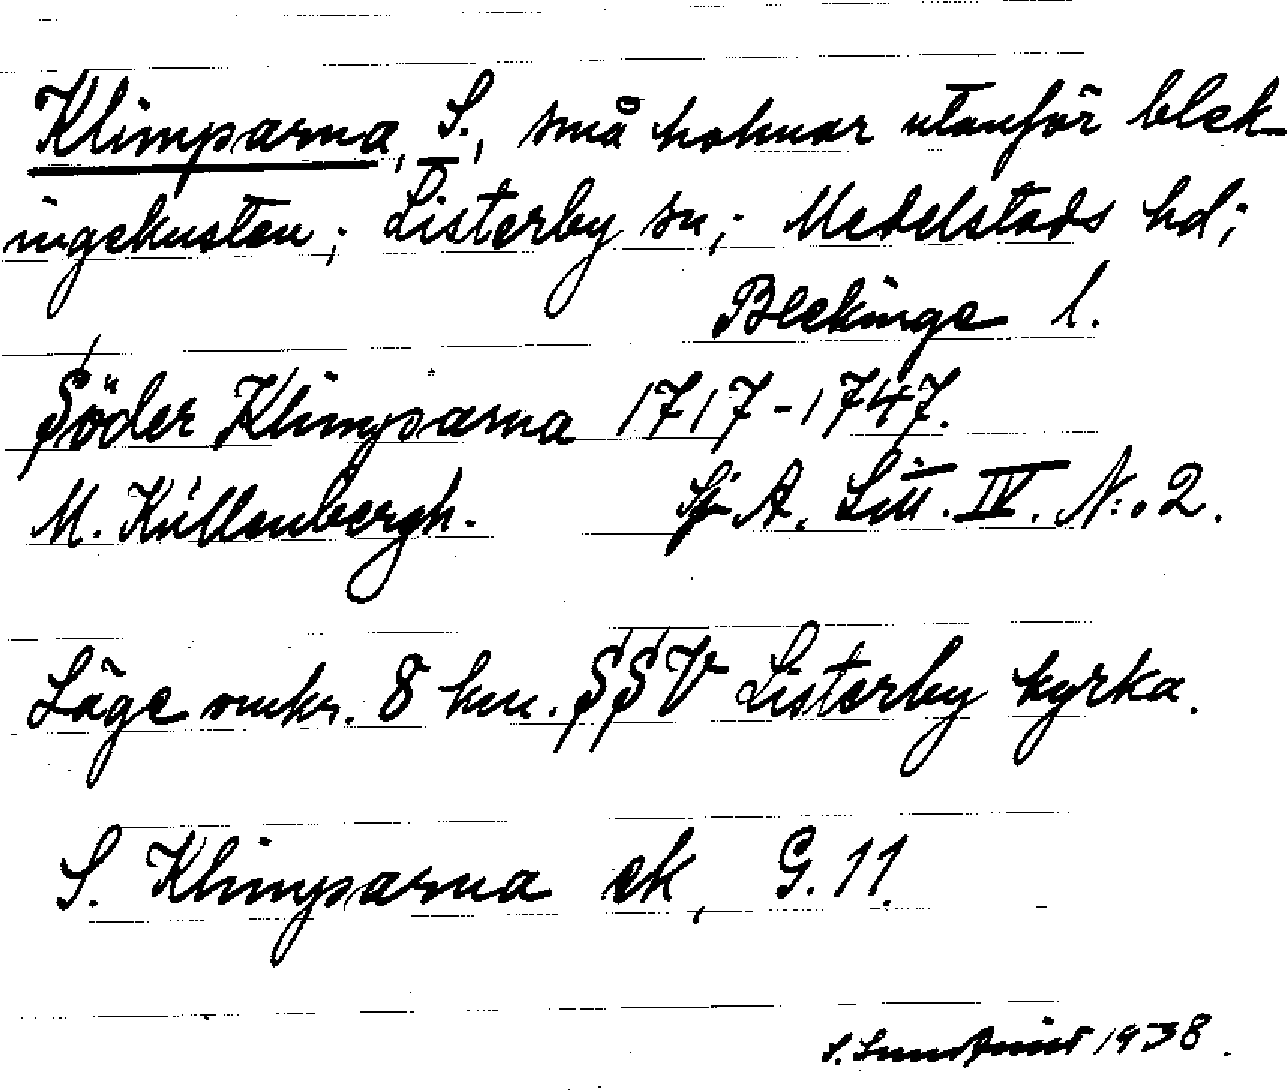 Klimparna, S., små holmar utanför blek-
ingekusten; Listerby sn; Medelstads hd;
Blekinge l.
Söder Klimparna 1717-1747.
M. Küllenbergh. Sj A. Litt. IV. N:o 2.
Läge omkr. 8 km. SSV Listerby kyrka.
S. Klimparna ek, G. 11.
1938.